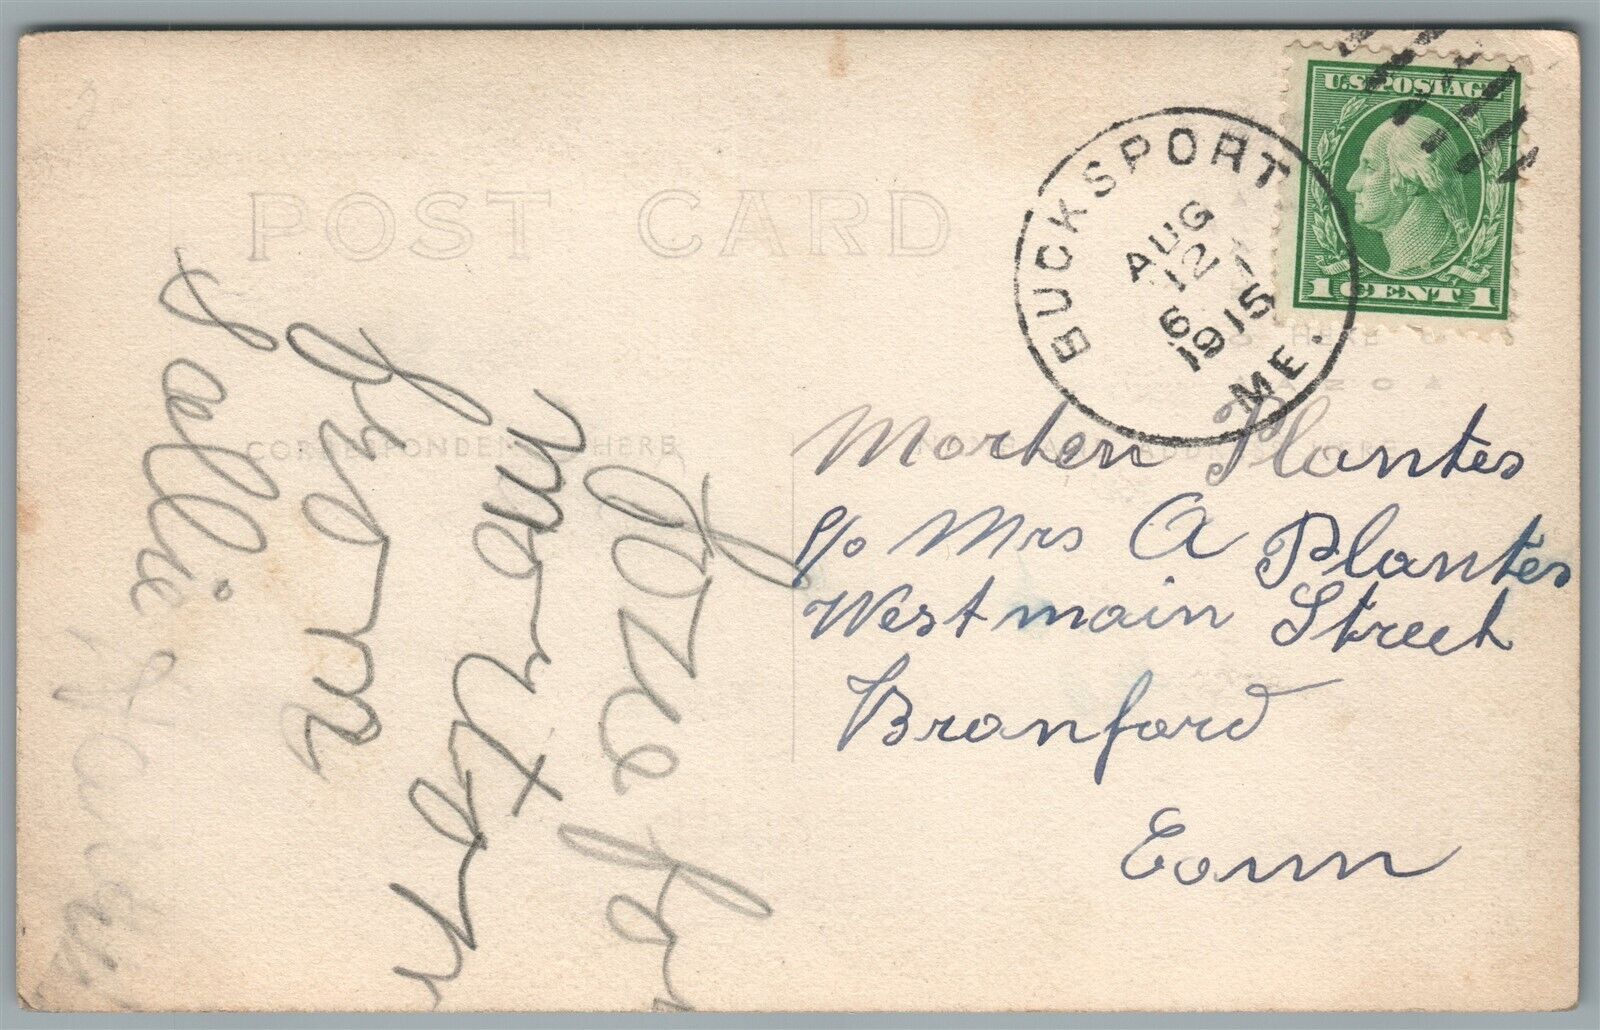 POST CARD
CORRESPONDENCE HERE
U.S. POSTAGE
1 CENT 1
BUCKSPORT
AUG
12
6
1915
ME.
Morten Plantes
c/o Mrs A Plantes
West main Street
Branford
Conn
for
morton
from
Sallie